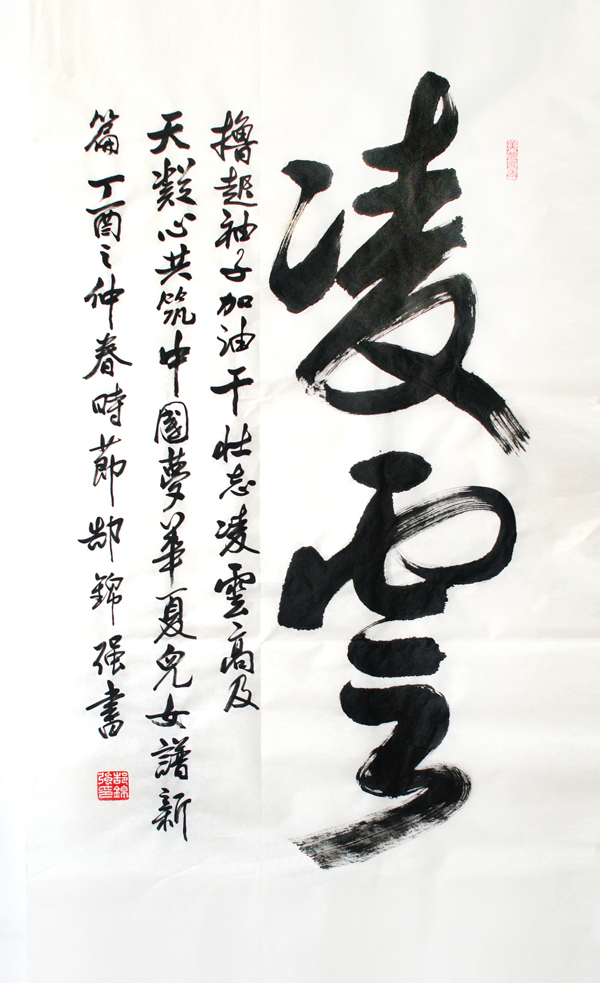 凌雲
擼起袖子加油干壮志凌雲高及
天凝心共筑中國夢華夏兒女譜新
篇丁酉之仲春時節郜錦强書
郜錦
强印